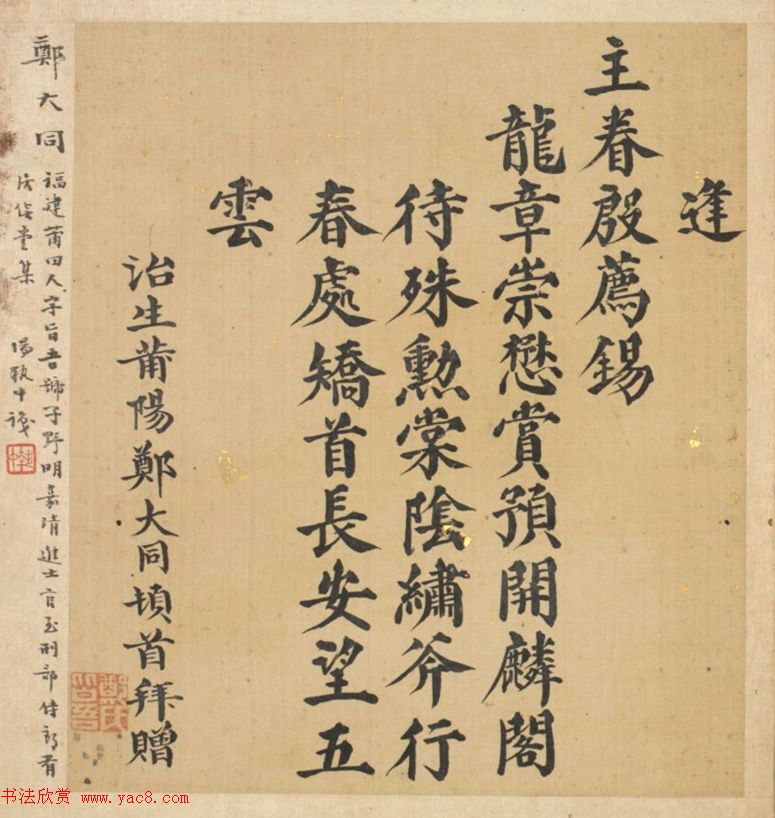 逢
主眷殷薦錫
龍章崇懋賞預開麟閣
待殊勲棠陰繡斧行
春處矯首長安望五
雲
治生莆陽鄭大同頓首拜贈
鄭氏
旨吾
鄭大同 福建莆田人字旨吾號子野明嘉靖進士官至刑部侍郎有
集
書法欣赏 www.yac8.com